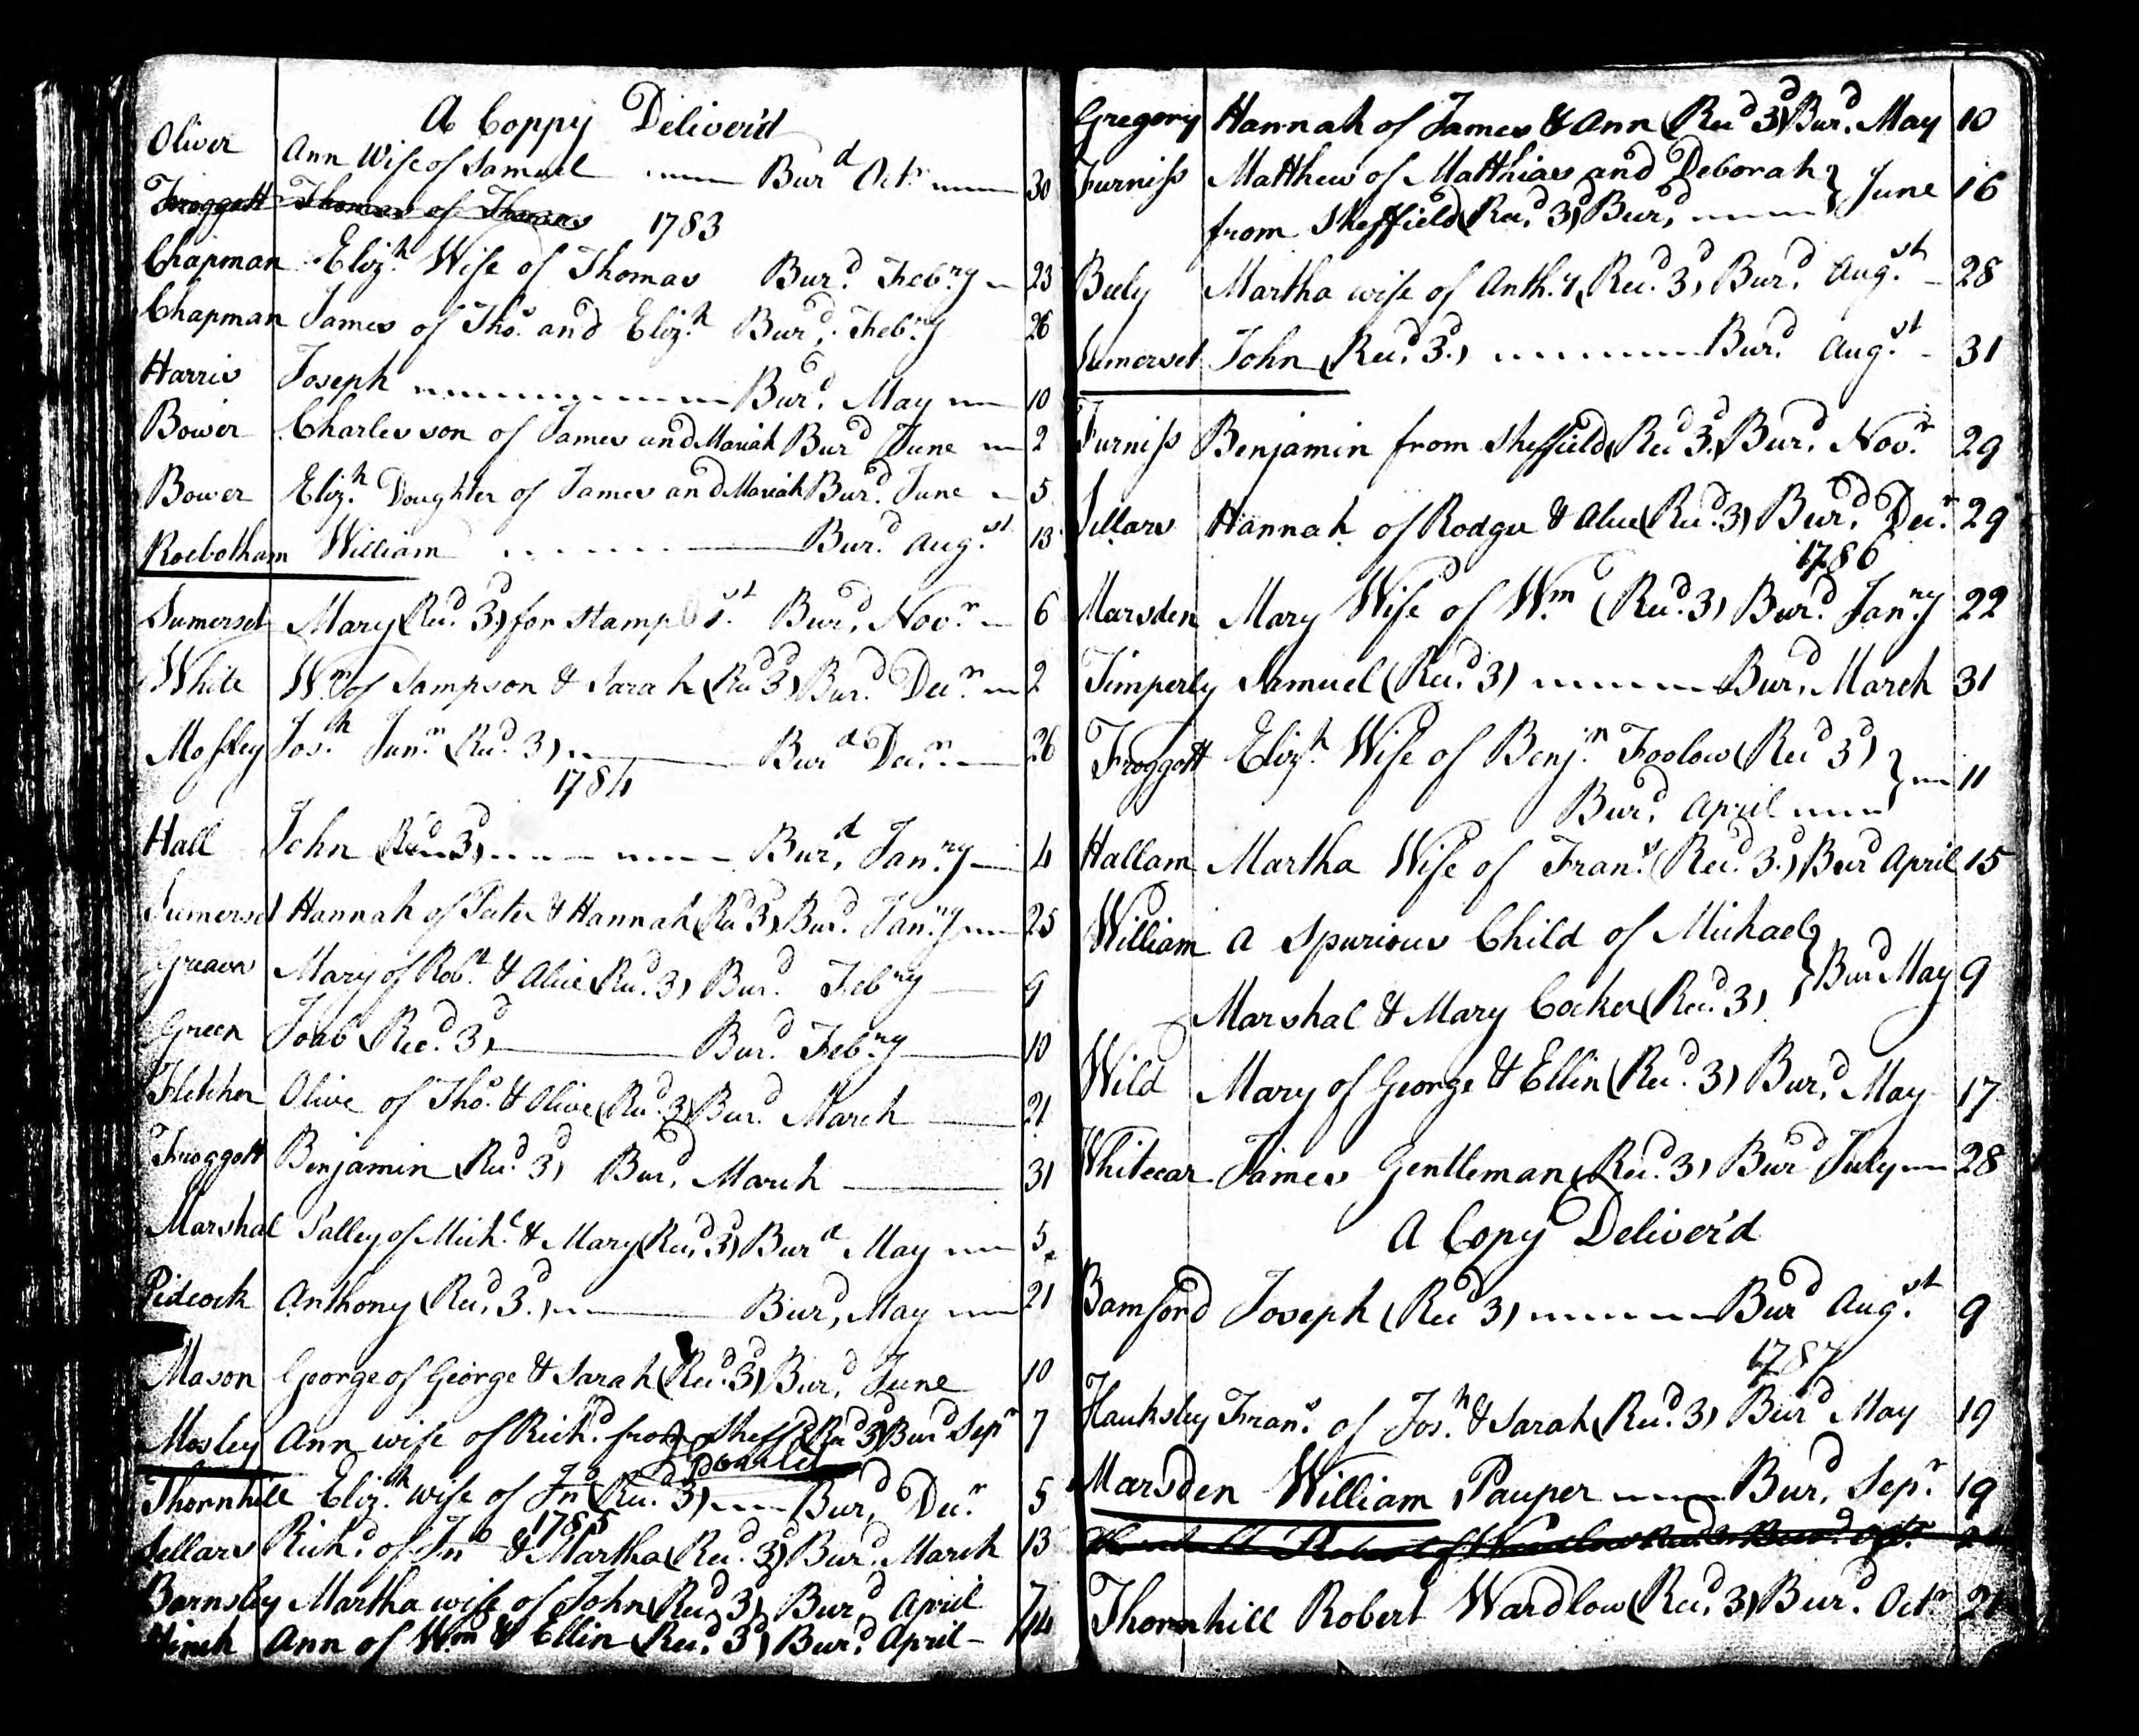 A Coppy Deliver'd
Oliver Ann Wife of Samuel Burd Octr 30
Froggott Thomas of Thomas
1783
Chapman Elizh Wife of Thomas Burd Febry 23
Chapman James of Thos and Elizh Burd Febry 26
Harris Joseph Burd May 10
Bower Charles son of James and Mariah Burd June 2
Bower Elizh Doughter of James and Mariah Burd June 5
Roebotham William Burd Augst 13
Sumerset Mary (Recd 3d) for Stamp Burd Novr 6
White Wm of Sampson & Sarah (Recd 3d) Burd Decr 2
Mosley Josh Junr (Recd 3) Burd Decr 26
1784
Hall John (Recd 3d) Burd Janry 4
Sumerset Hannah of Peter & Hannah (Recd 3d) Burd Janry 25
Greaves Mary of Robt & Alice (Recd 3) Burd Febry 9
Green Joab (Recd 3d) Burd Febry 10
Fletcher Olive of Thos & Olive (Recd 3) Burd March 21
Froggott Benjamin (Recd 3d) Burd March 31
Marshal Salley of Michl & Mary (Recd 3d) Burd May 5
Pidcock Anthony (Recd 3d) Burd May 21
Mason George of George & Sarah (Recd 3d) Burd June 10
Mosley Ann wife of Richd from Sheffd (Recd 3d) Burd Sepr 7
Thornhill Elizh wife of Jno (Recd 3d) Burd Decr 5
1785
Sellars Richd of Jno & Martha (Recd 3d) Burd March 13
Barnsley Martha wife of John (Recd 3d) Burd April 7
Ann of Wm & Ellin (Recd 3d) Burd April 14
Gregory Hannah of James & Ann (Recd 3d) Burd May 10
Furniss Matthew of Matthias and Deborah
from Sheffield (Recd 3d) Burd June 16
Beely Martha wife of Anthy (Recd 3d) Burd Augst 28
Sumerset John (Recd 3d) Burd Augst 31
Furniss Benjamin from Sheffield (Recd 3d) Burd Novr 29
Sellars Hannah of Rodger & Alice (Recd 3) Burd Decr 29
1786
Marsden Mary Wife of Wm (Recd 3) Burd Janry 22
Timperly Samuel (Recd 3) Burd March 31
Froggott Elizh Wife of Benjn Foolow (Recd 3d)
Burd April 11
Hallam Martha Wife of Frans (Recd 3d) Burd April 15
William a Spurious Child of Michael
Marshal & Mary Cocker (Recd 3) Burd May 9
Wild Mary of George & Ellin (Recd 3) Burd May 17
Whitecar James Gentleman (Recd 3) Burd July 28
A Copy Deliver'd
Bamford Joseph (Recd 3) Burd Augst 9
1787
Hauksley Frans of Josh & Sarah (Recd 3) Burd May 19
Marsden William Pauper Burd Sepr 19
Thornhill Robert Wardlow (Recd 3) Burd Octr 21